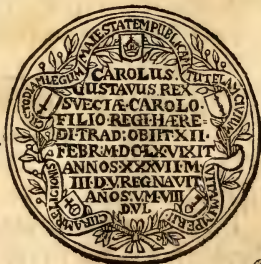 MAIESTATEM PUBLICAM
CUSTODIAM LEGUM
CAROLUS.
GUSTAVUS. REX
SVECIÆ·CAROLO
FILIO·REGI·HÆRE=
DI·TRAD: OBIIT XII.
FEBR: M·DC·LX·VIXIT
ANNOS·XXXVII·M·
III·D·V·REGNAVIT
AÑOS·V·M·VIII
D·VI·
IMPERII
CURAM